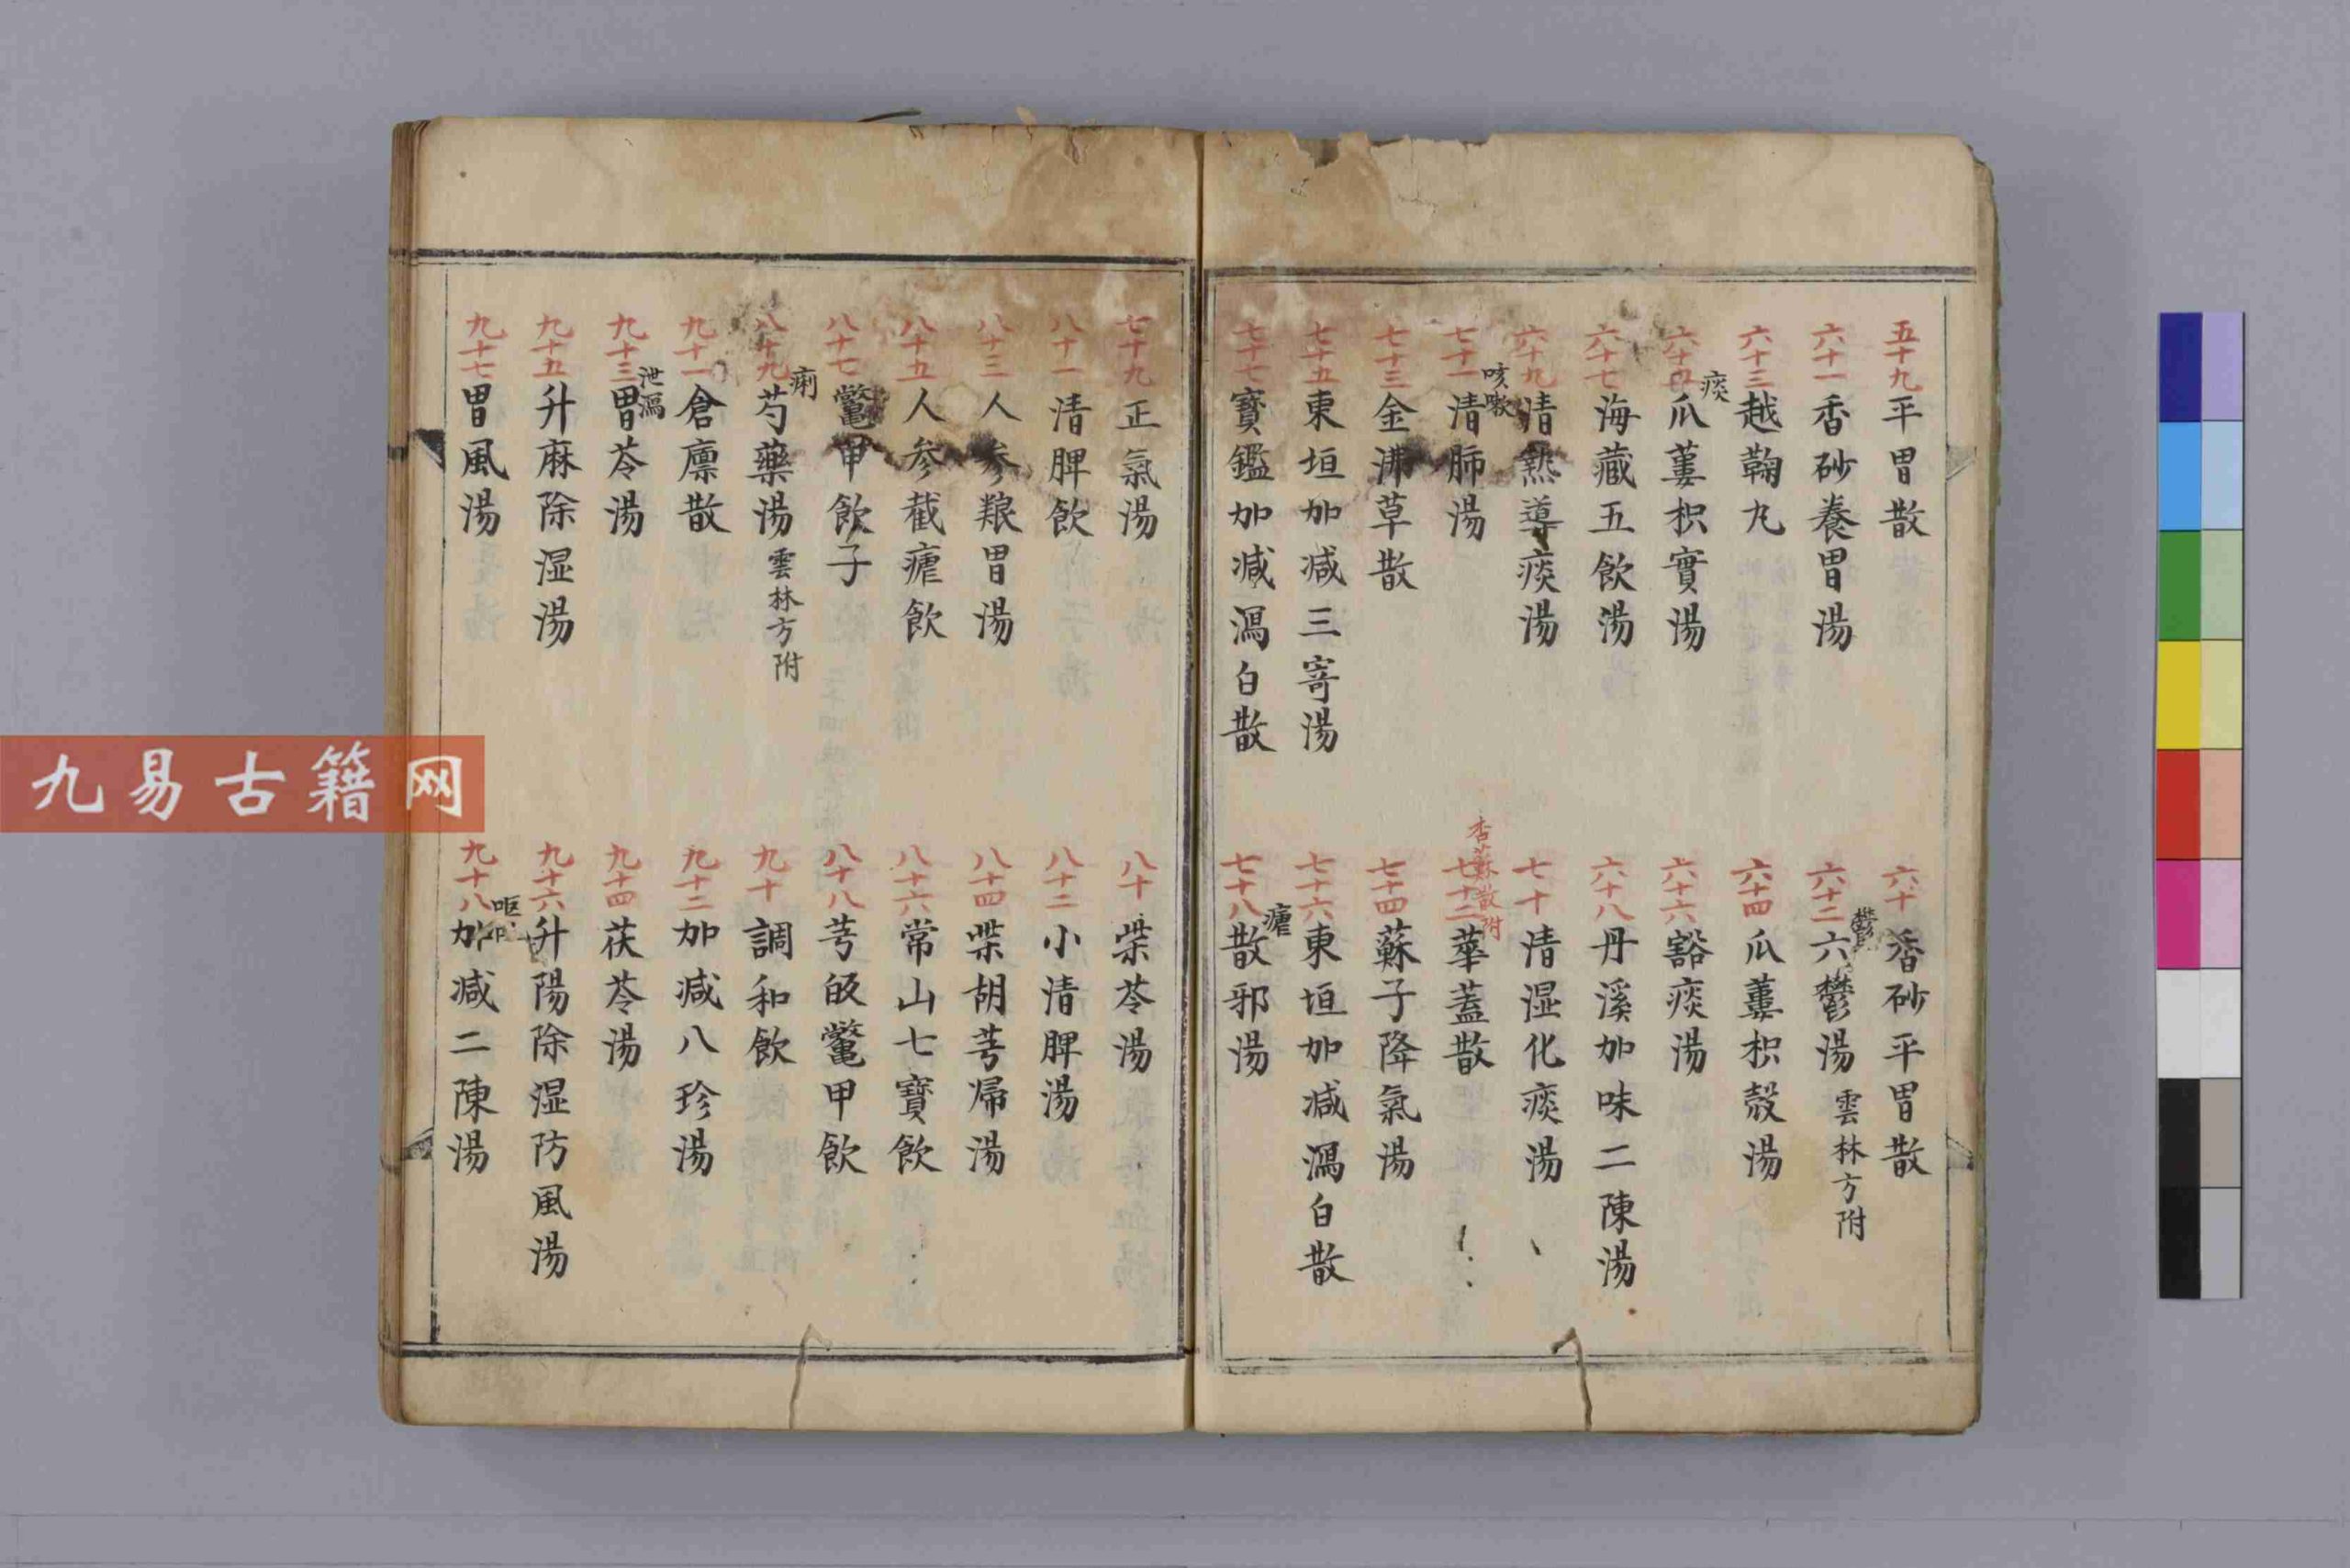 五十九平胃散
六十香砂平胃散
六十一香砂養胃湯
鬱
六十二六鬱湯 雲林方附
六十三越鞠丸
六十四瓜蔞枳殼湯
痰
六十五瓜蔞枳實湯
六十六豁痰湯
六十七海藏五飲湯
六十八丹溪加味二陳湯
六十九清熱導痰湯
七十清湿化痰湯
咳嗽
七十一清肺湯
七十二華蓋散
杏蘇散附
七十三金沸草散
七十四蘇子降氣湯
七十五東垣加減三寄湯
七十六東垣加減瀉白散
七十七寳鑑加減瀉白散
瘧
七十八散邪湯
七十九正氣湯
八十柴苓湯
八十一清脾飲
八十二小清脾湯
八十三人参粮胃湯
八十四柴胡芎帰湯
八十五人参截瘧飲
八十六常山七寳飲
八十七鱉甲飲子
八十八芎皈鱉甲飲
痢
八十九芍藥湯 雲林方附
九十調和飲
九十一倉廪散
九十二加減八珍湯
泄瀉
九十三胃苓湯
九十四茯苓湯
九十五升麻除湿湯
九十六升陽除湿防風湯
九十七胃風湯
嘔
九十八加減二陳湯
九易古籍网